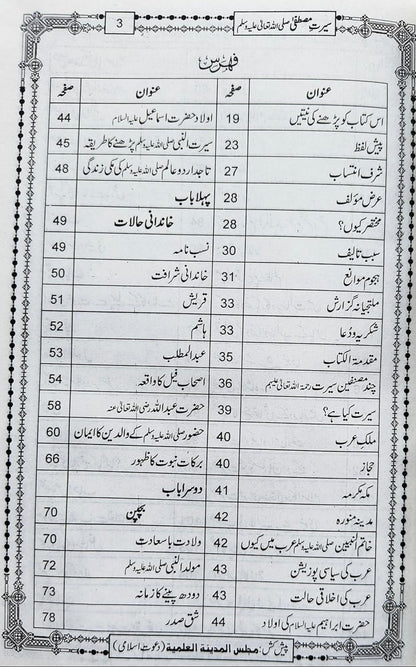 سیرتِ مصطفیٰ صلی اللہ تعالیٰ علیہ وسلم
3
فہرس
عنوان صفحہ
اس کتاب کو پڑھنے کی نیتیں 19
پیش لفظ 23
شرف انتساب 27
عرض مؤلف 28
مختصر کیوں؟ 28
سبب تالیف 30
ہجوم موانع 31
ملتجیانہ گزارش 33
شکریہ و دُعا 33
مقدمۃ الکتاب 35
چند مصنفین سیرت رحمۃ اللہ تعالیٰ علیہم 36
سیرت کیا ہے؟ 39
ملک عرب 40
حجاز 40
مکہ مکرمہ 41
مدینہ منورہ 42
خاتم النبیین صلی اللہ علیہ وسلم عرب میں کیوں 42
عرب کی سیاسی پوزیشن 43
عرب کی اخلاقی حالت 43
حضرت ابراہیم علیہ السلام کی اولاد 44
عنوان صفحہ
اولاد حضرت اسماعیل علیہ السلام 44
سیرت النبی صلی اللہ علیہ وسلم پڑھنے کا طریقہ 45
تاجدار دو عالم صلی اللہ علیہ وسلم کی مکی زندگی 48
پہلا باب
خاندانی حالات 49
نسب نامہ 49
خاندانی شرافت 50
قریش 51
ہاشم 52
عبد المطلب 53
اصحاب فیل کا واقعہ 54
حضرت عبد اللہ رضی اللہ تعالیٰ عنہ 58
حضور صلی اللہ علیہ وسلم کے والدین کا ایمان 60
برکات نبوت کا ظہور 66
دوسرا باب
بچپن 70
ولادت باسعادت 70
مولد النبی صلی اللہ علیہ وسلم 72
دودھ پینے کا زمانہ 73
شق صدر 78
پیش کش: مجلس المدینة العلمیة (دعوتِ اسلامی)